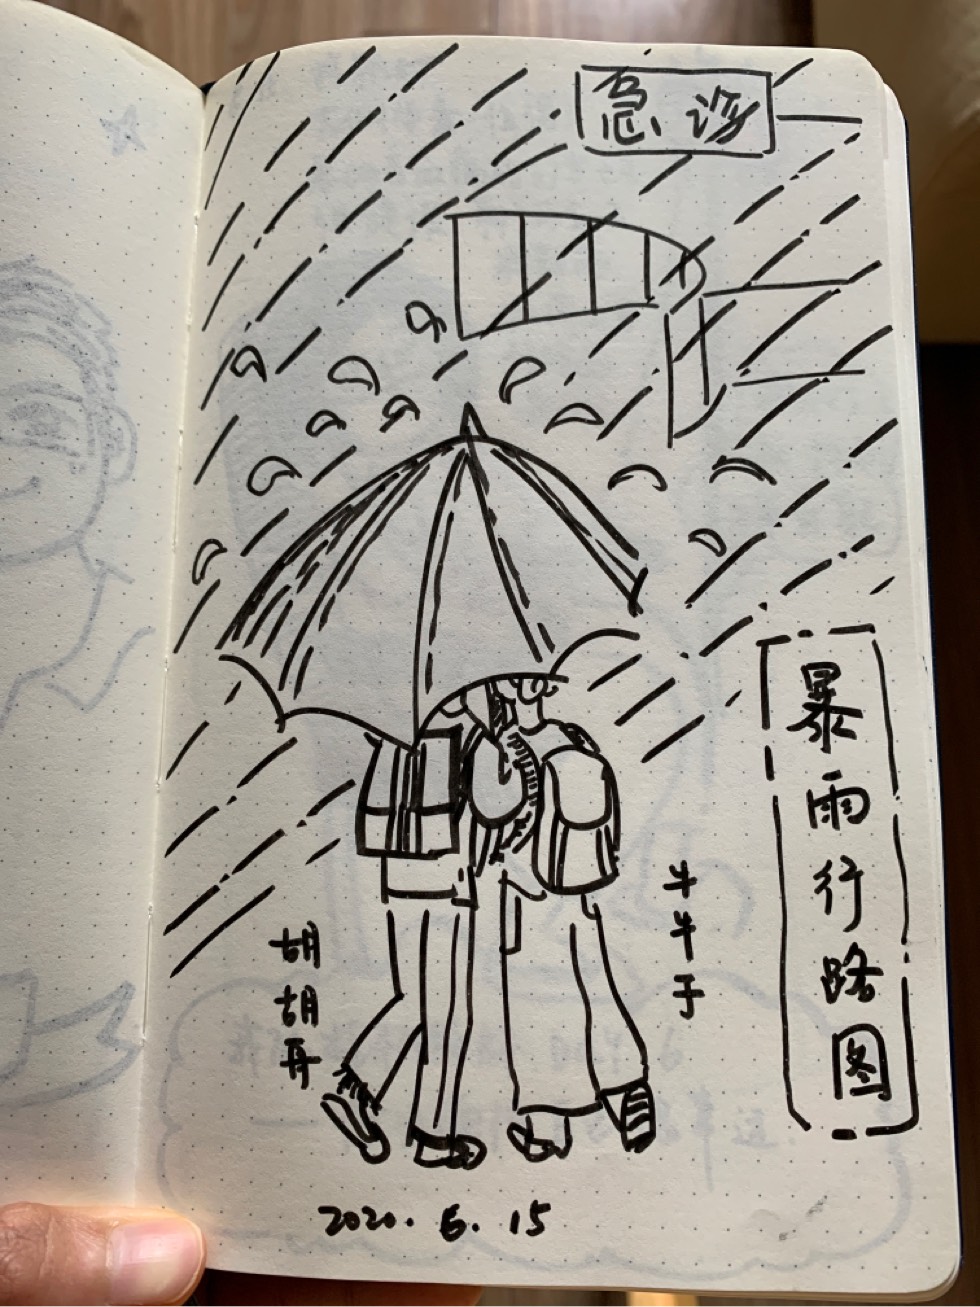 急诊
暴雨行路图
牛牛于
胡胡再
2020. 6. 15